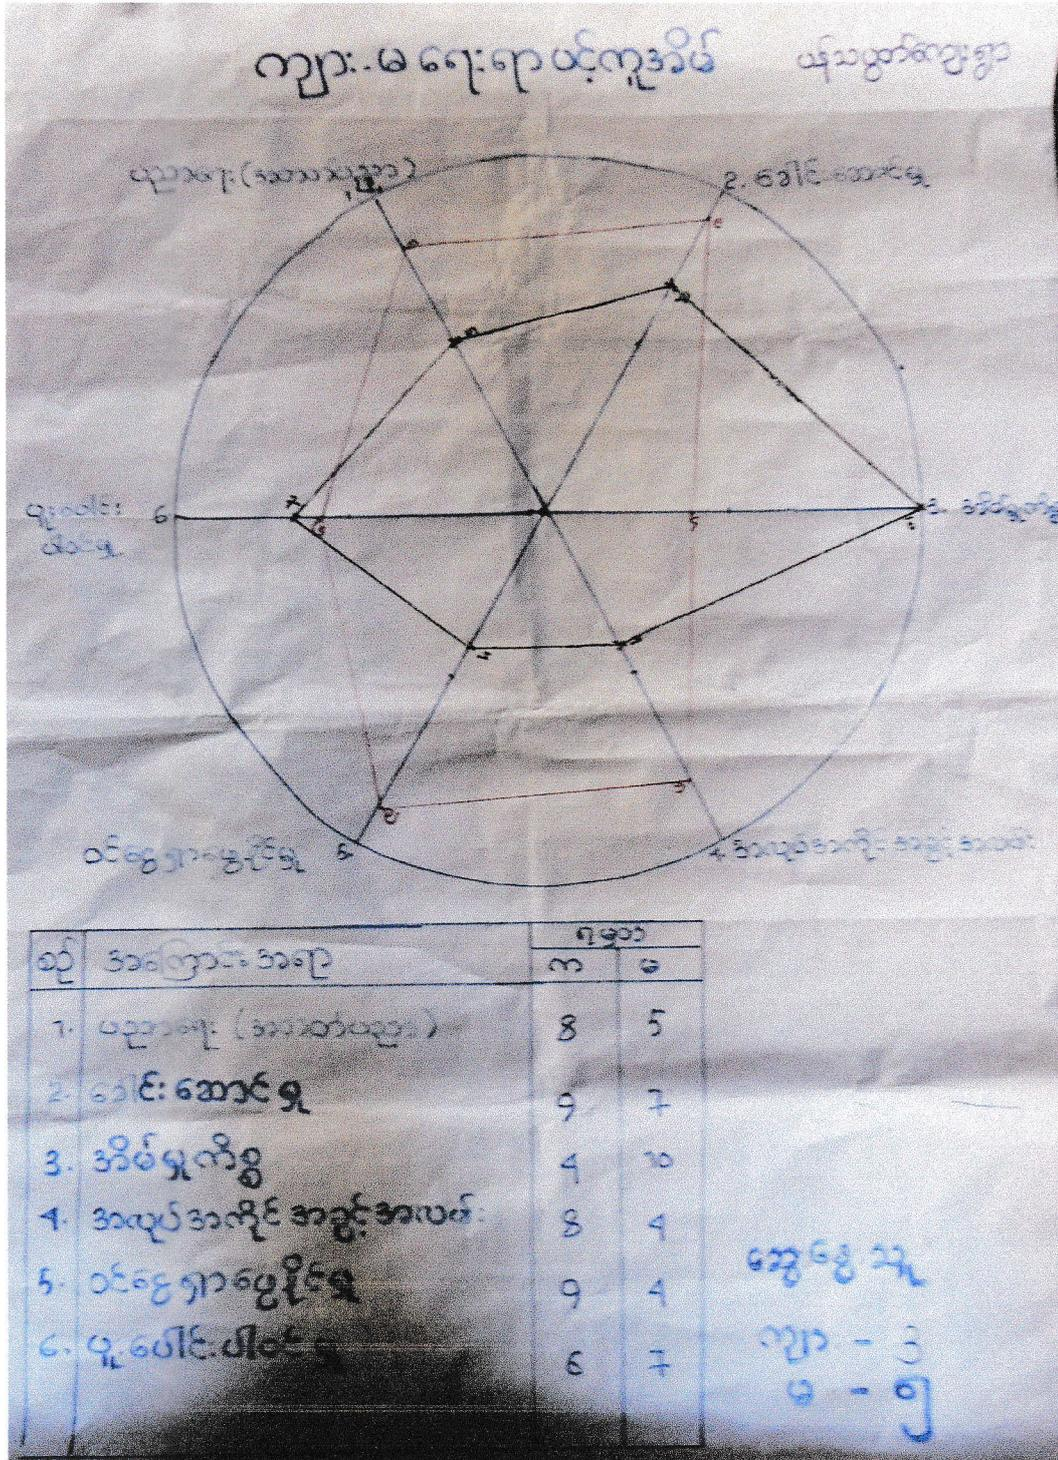 ကျား-မ ရေးရာ ပင့်ကူအိမ်
ပန်သပွတ်ကျေးရွာ
ပညာရေး (အသက်ပညာ)
2. ခေါင်းဆောင်မှု
3. အိမ်မှုကိစ္စ
6 ပူးပေါင်း
ပါဝင်မှု
5. ဝင်ငွေရှာဖွေနိုင်မှု
4. အလုပ်အကိုင်အခွင့်အလမ်း
စဉ် အကြောင်းအရာ ရမှတ်
က မ
1. ပညာရေး (အသက်ပညာ) 8 5
2. ခေါင်းဆောင်မှု 9 7
3. အိမ်မှုကိစ္စ 4 10
4. အလုပ်အကိုင်အခွင့်အလမ်း 8 4
5. ဝင်ငွေရှာဖွေနိုင်မှု 9 4
6. ပူးပေါင်းပါဝင်မှု 6 7
ဆွေးနွေးသူ
ကျား - ၃
မ - ၅